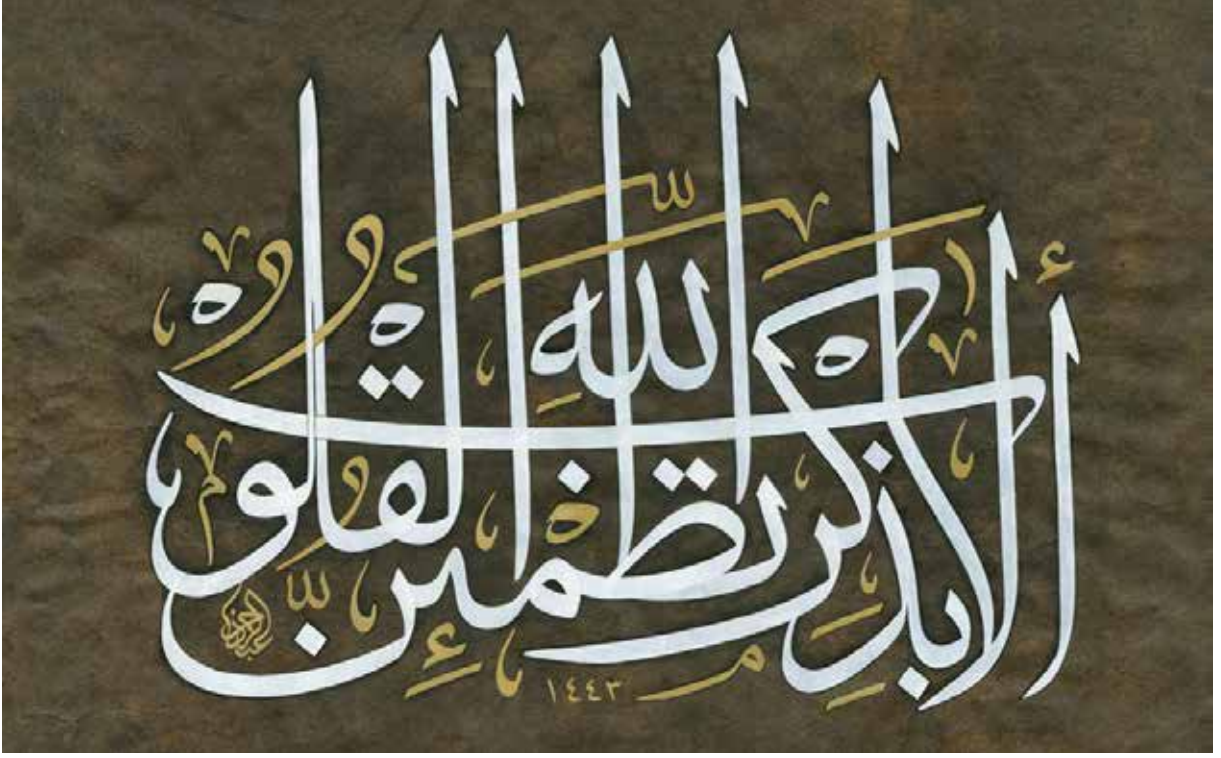 ألا بذكر الله تطمئن القلوب
١٤٤٣